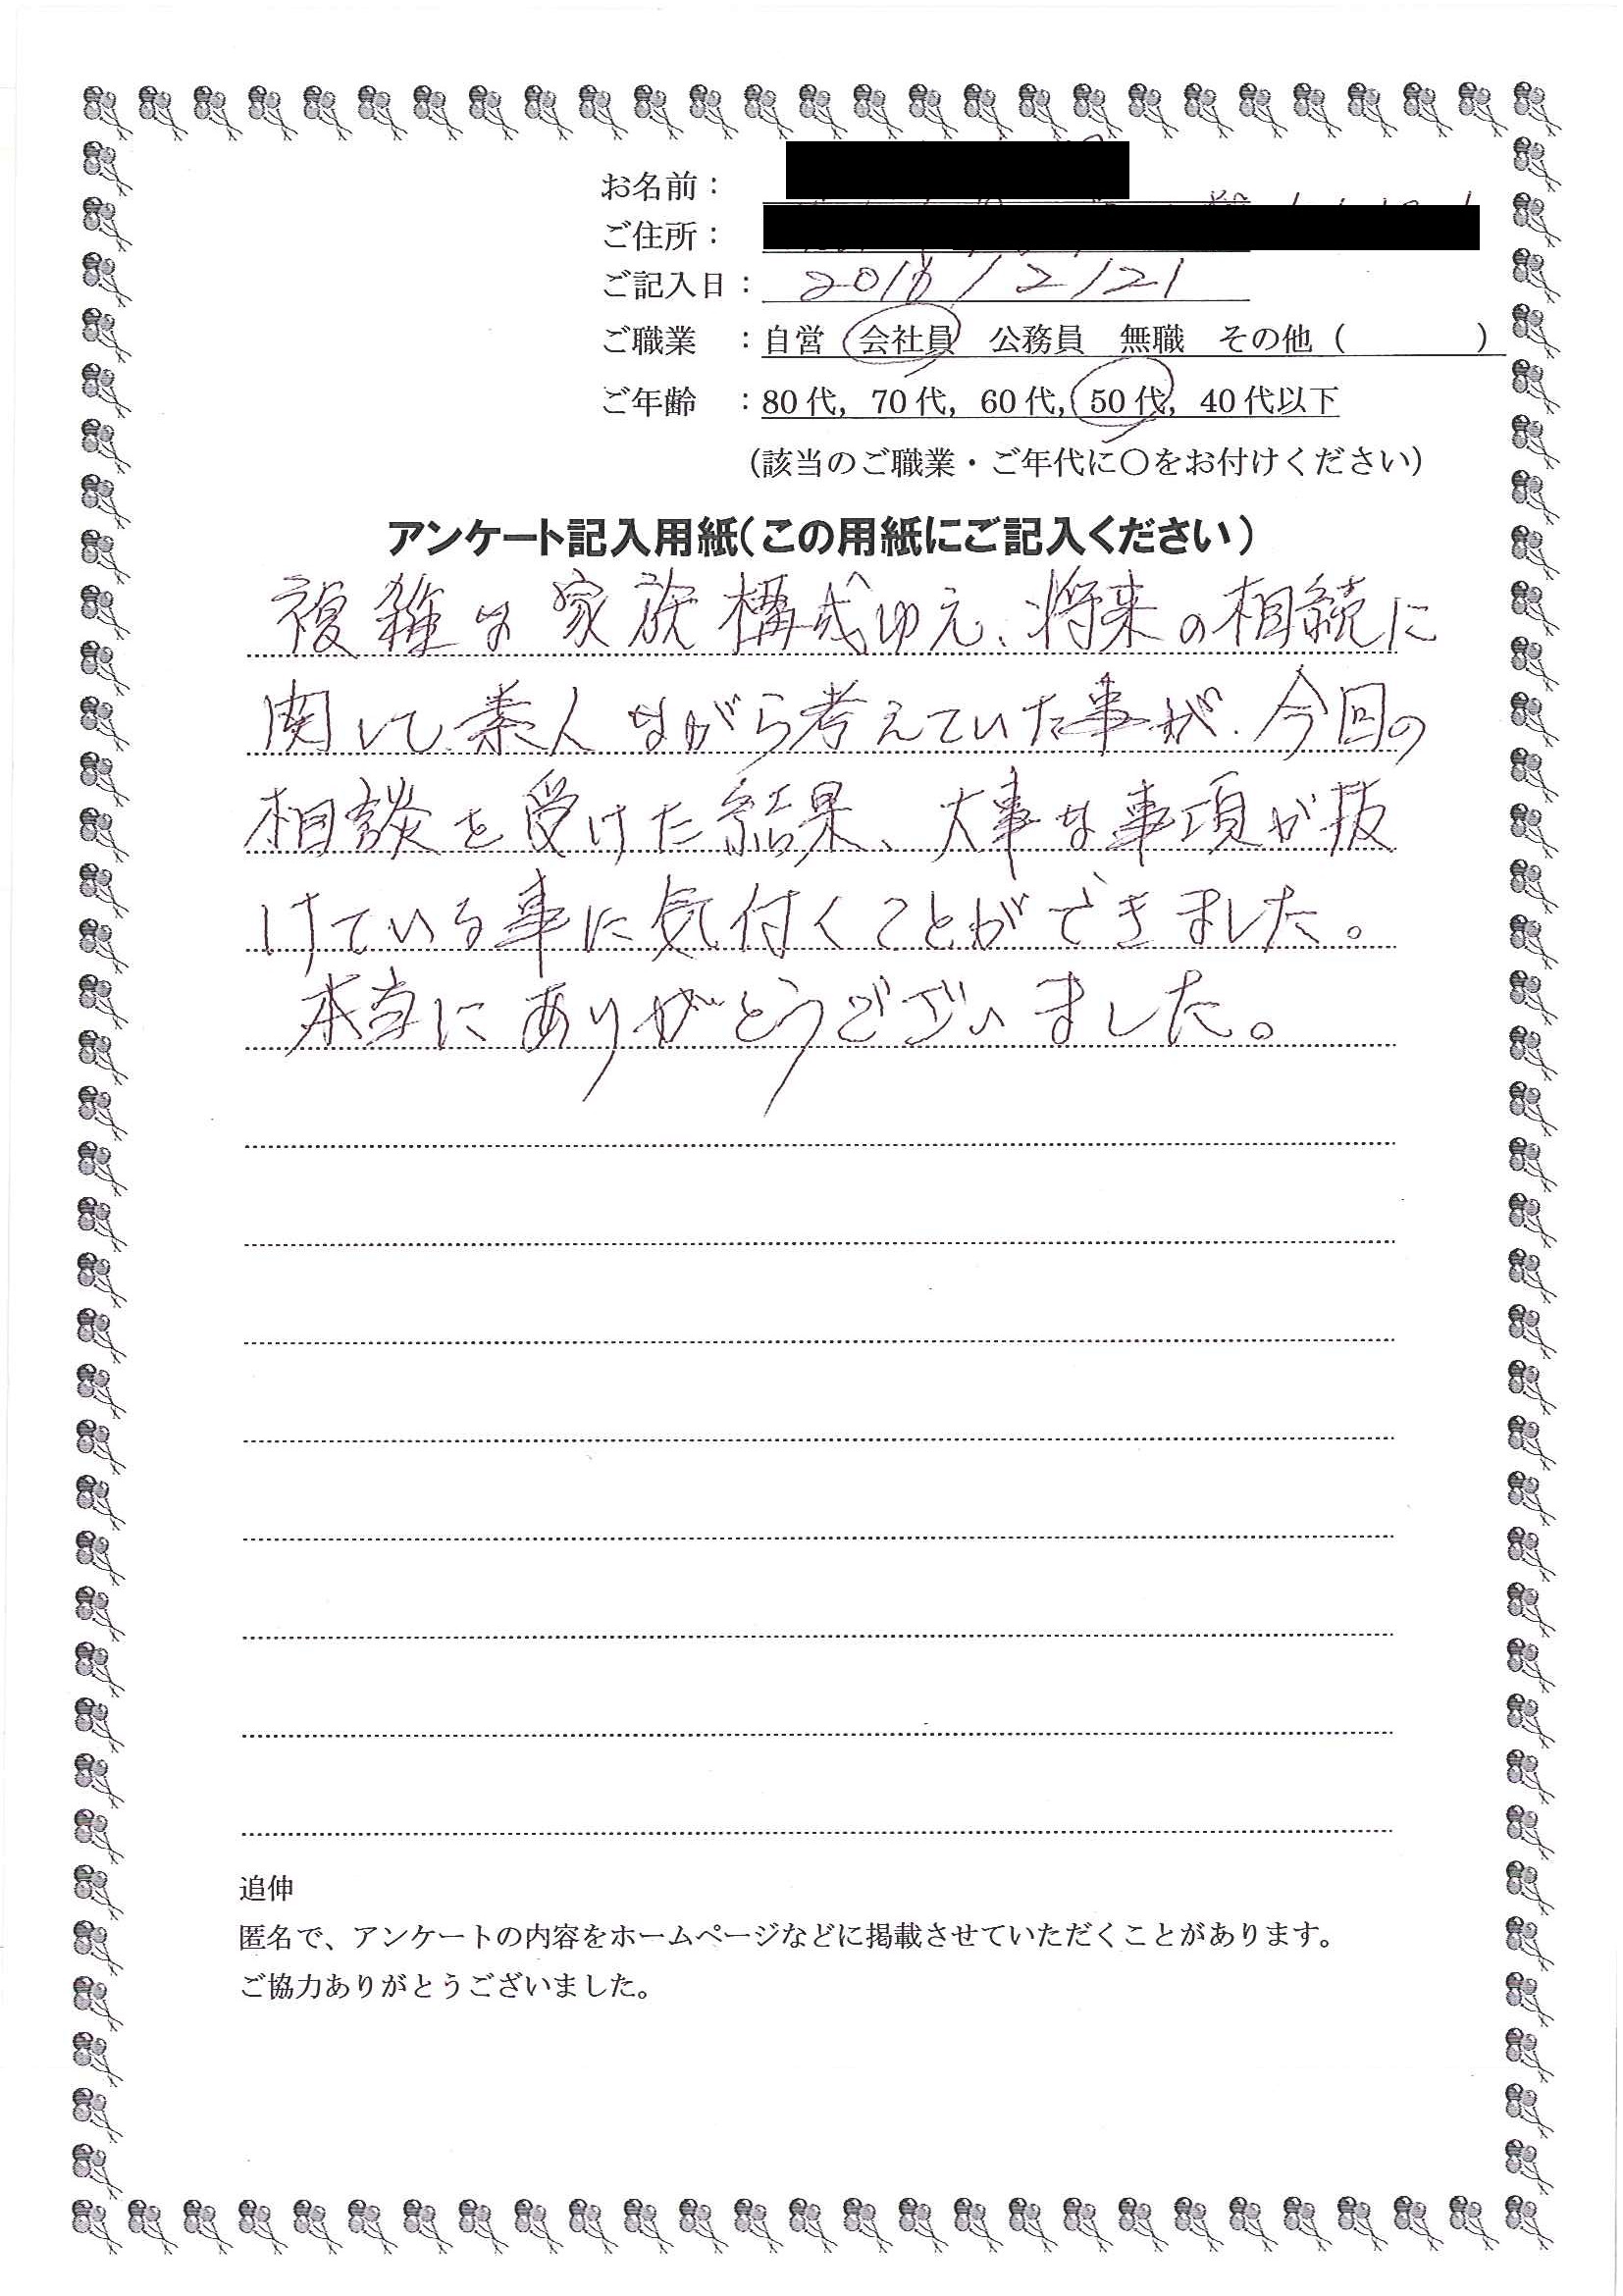 お名前：
ご住所：
ご記入日： 2016/2/21
ご職業 ：自営 会社員 公務員 無職 その他（ ）
ご年齢 ：80代，70代，60代，50代，40代以下
（該当のご職業・ご年代に〇をお付けください）
アンケート記入用紙（この用紙にご記入ください）
複雑な家族構成ゆえ、将来の相続に
関して、素人ながら考えていた事が、今回の
相談を受けた結果、大事な事項が抜
けている事に気付くことができました。
本当にありがとうございました。
追伸
匿名で、アンケートの内容をホームページなどに掲載させていただくことがあります。
ご協力ありがとうございました。